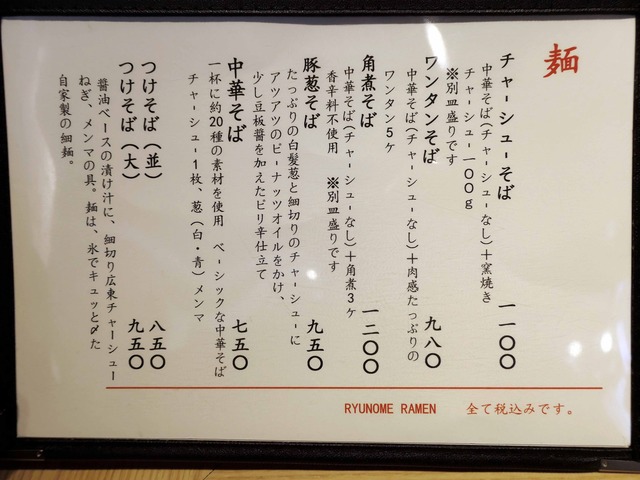 麺
チャーシューそば 一一〇〇
中華そば(チャーシューなし)+窯焼き
チャーシュー一〇〇g
※別皿盛りです
ワンタンそば 九八〇
中華そば(チャーシューなし)+肉感たっぷりの
ワンタン5ケ
角煮そば 一二〇〇
中華そば(チャーシューなし)+角煮3ケ
香辛料不使用 ※別皿盛りです
豚葱そば 九五〇
たっぷりの白髪葱と細切りのチャーシューに
アツアツのピーナッツオイルをかけ、
少し豆板醤を加えたピリ辛仕立て
中華そば 七五〇
一杯に約20種の素材を使用 ベーシックな中華そば
チャーシュー1枚、葱(白・青)メンマ
つけそば(並) 八五〇
つけそば(大) 九五〇
醤油ベースの漬け汁に、細切り広東チャーシュー
ねぎ、メンマの具。麺は、氷でキュッと〆た
自家製の細麺。
RYUNOME RAMEN 全て税込みです。